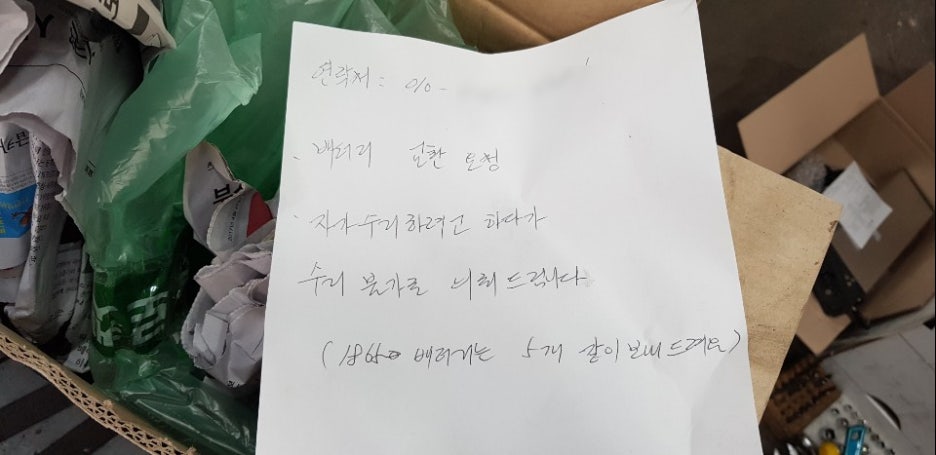 연락처 : 010-
· 배터리 교환 요청
· 자가수리하려고 하다가
수리 불가로 의뢰드립니다.
(18650 배터리는 5개 같이 보내드려요)